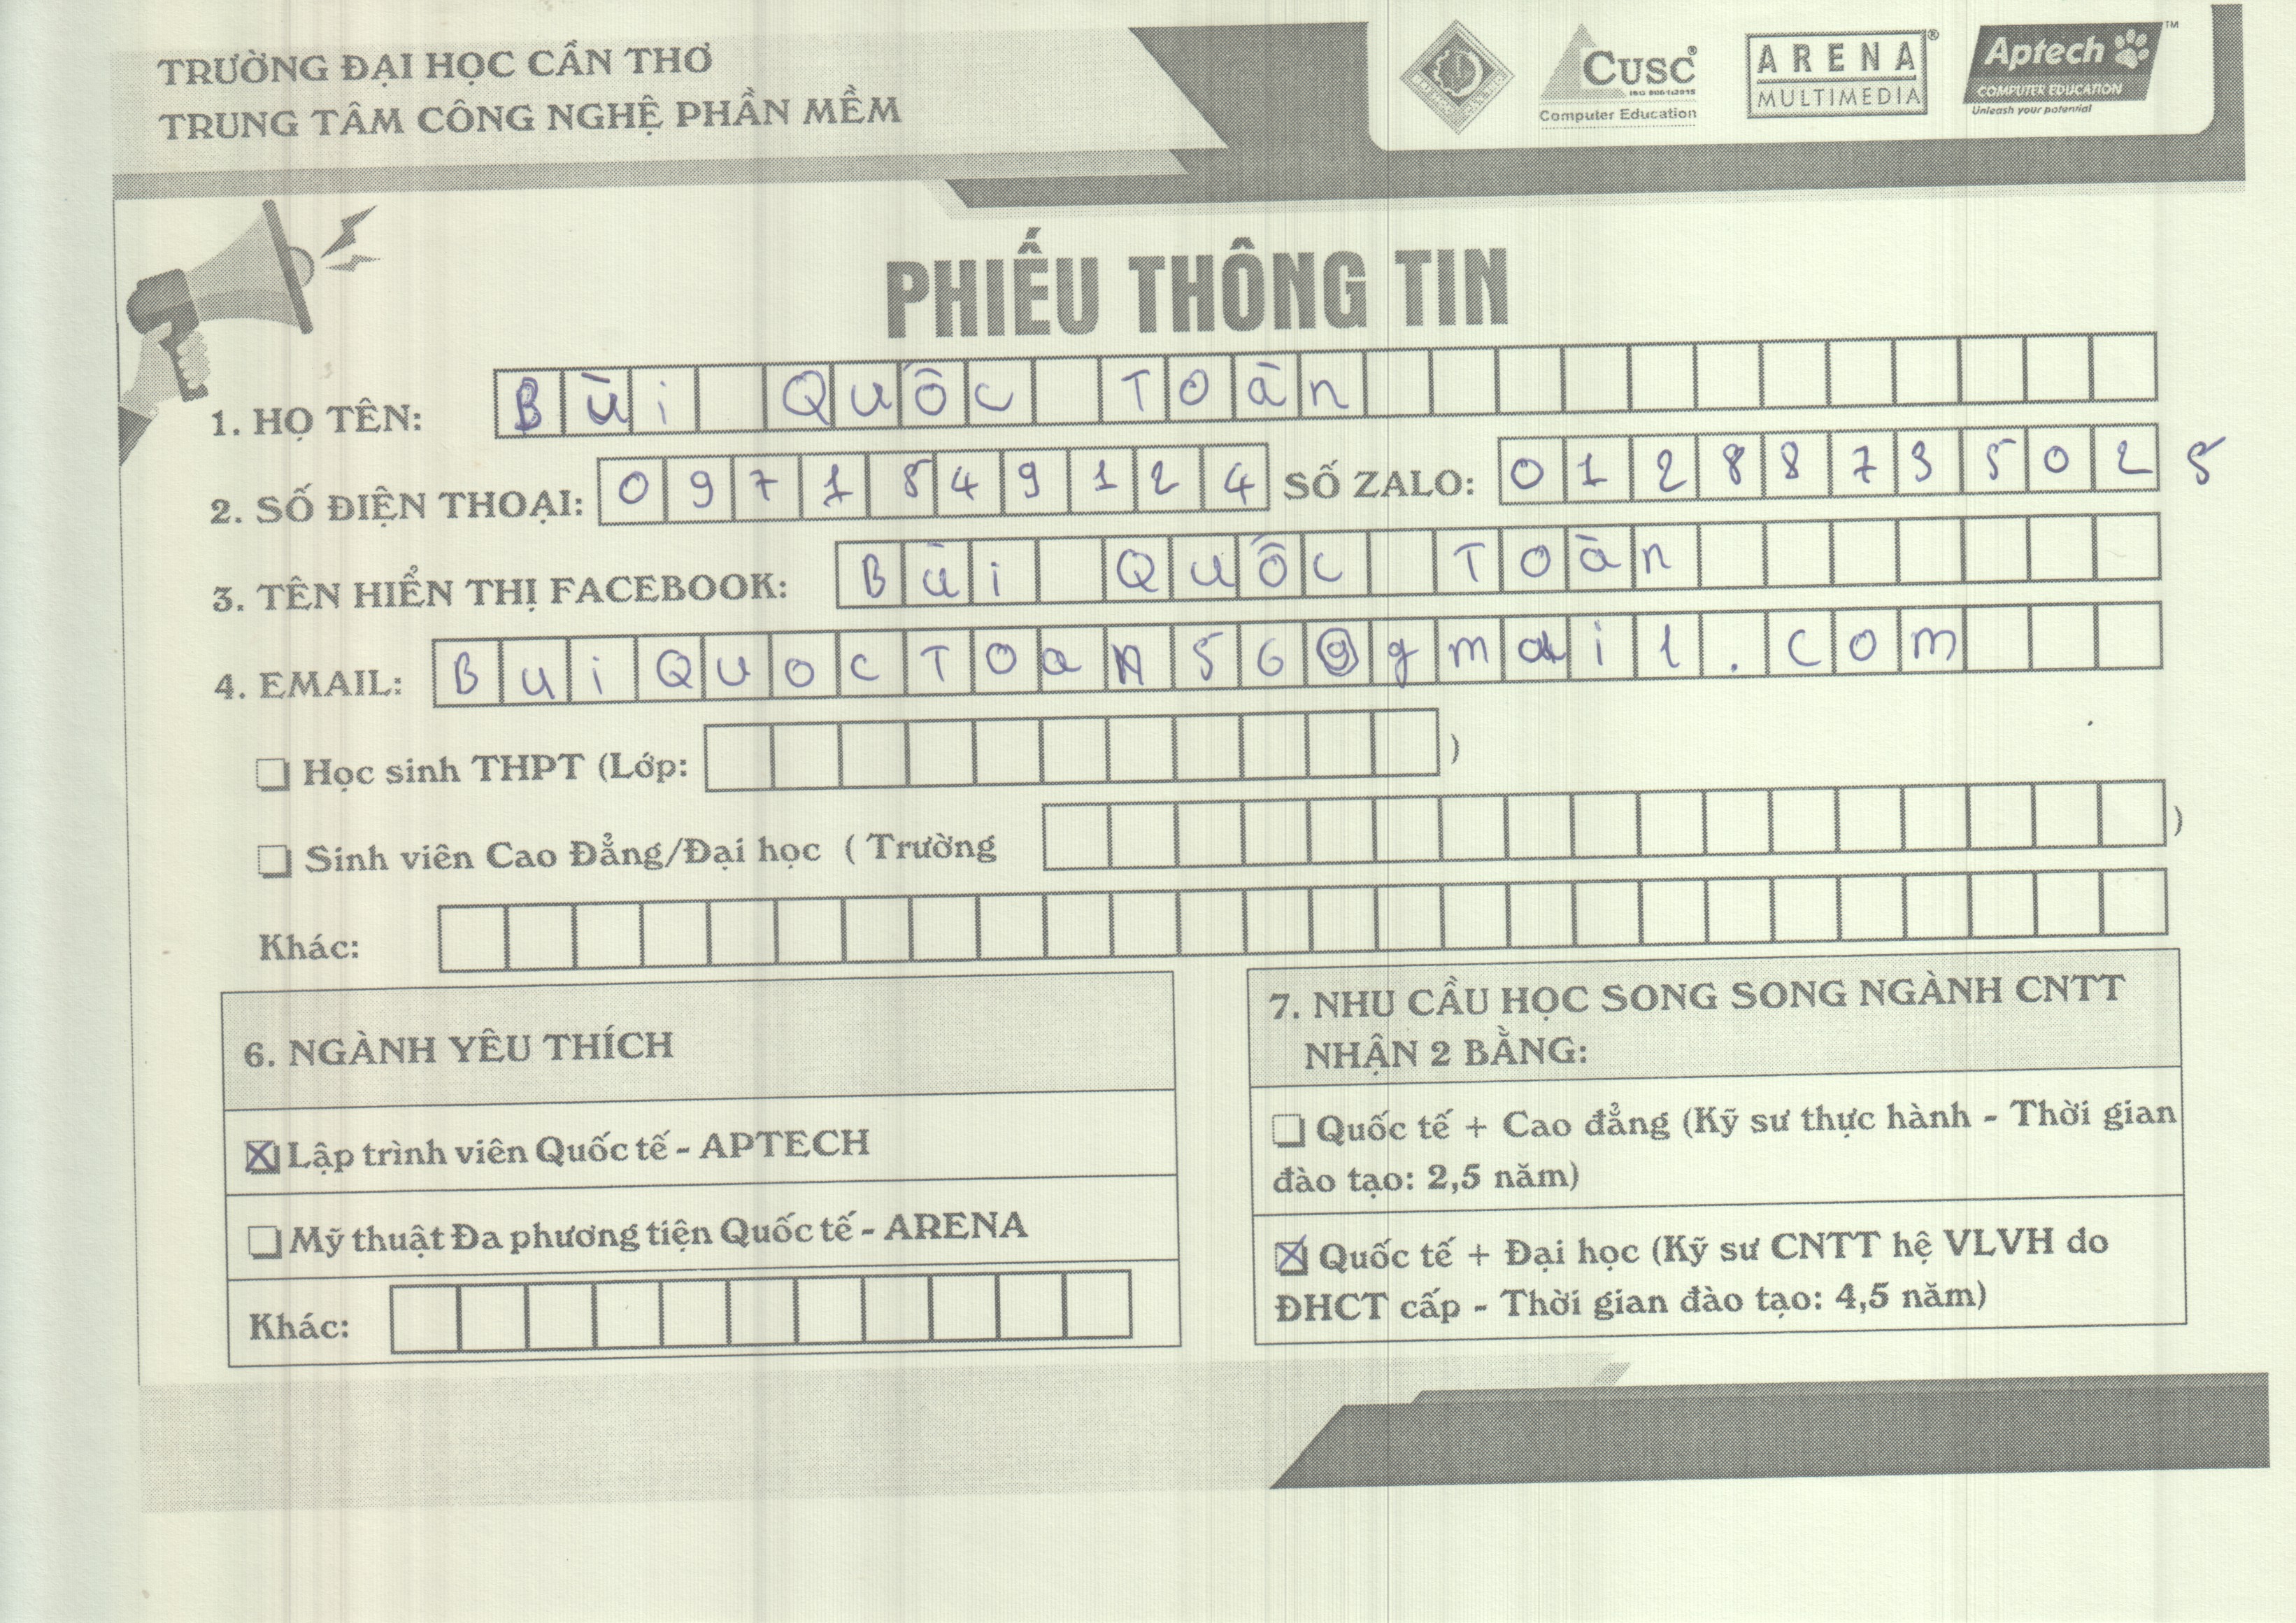 TRƯỜNG ĐẠI HỌC CẦN THƠ
TRUNG TÂM CÔNG NGHỆ PHẦN MỀM
CUSC®
ISO 9001:2015
Computer Education
ARENA®
MULTIMEDIA
Aptech™
COMPUTER EDUCATION
Unleash your potential
PHIẾU THÔNG TIN
1. HỌ TÊN: Bùi Quốc Toàn
2. SỐ ĐIỆN THOẠI: 0971849124 SỐ ZALO: 01288735025
3. TÊN HIỂN THỊ FACEBOOK: Bùi Quốc Toàn
4. EMAIL: BuiQuocToan56@gmail.com
Học sinh THPT (Lớp: )
Sinh viên Cao Đẳng/Đại học ( Trường )
Khác:
6. NGÀNH YÊU THÍCH
Lập trình viên Quốc tế - APTECH
Mỹ thuật Đa phương tiện Quốc tế - ARENA
Khác:
7. NHU CẦU HỌC SONG SONG NGÀNH CNTT
NHẬN 2 BẰNG:
Quốc tế + Cao đẳng (Kỹ sư thực hành - Thời gian
đào tạo: 2,5 năm)
Quốc tế + Đại học (Kỹ sư CNTT hệ VLVH do
ĐHCT cấp - Thời gian đào tạo: 4,5 năm)